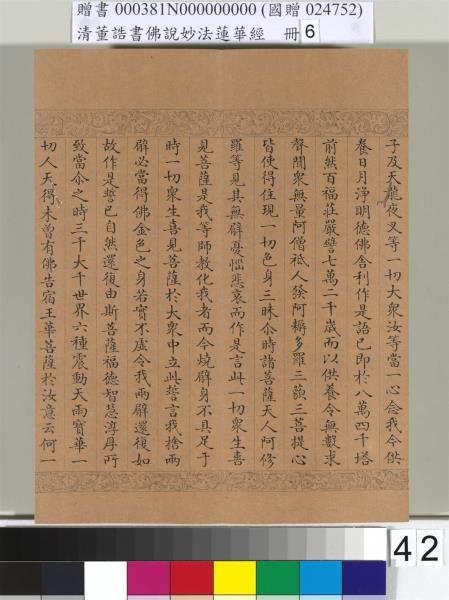 贈書 000381N000000000 (國贈 024752)
清董誥書佛說妙法蓮華經 冊6
子及天龍夜叉等一切大衆汝等當一心念我今供
養日月淨明德佛舍利作是語已即於八萬四千塔
前然百福莊嚴臂七萬二千歲而以供養令無數求
聲聞衆無量阿僧祇人發阿耨多羅三藐三菩提心
皆使得住現一切色身三昧尒時諸菩薩天人阿修
羅等見其無臂憂惱悲哀而作是言此一切衆生喜
見菩薩是我等師教化我者而今燒臂身不具足于
時一切衆生喜見菩薩於大衆中立此誓言我捨兩
臂必當得佛金色之身若實不虛令我兩臂還復如
故作是誓已自然還復由斯菩薩福德智慧淳厚所
致當尒之時三千大千世界六種震動天雨寶華一
切人天得未曾有佛告宿王華菩薩於汝意云何一
42